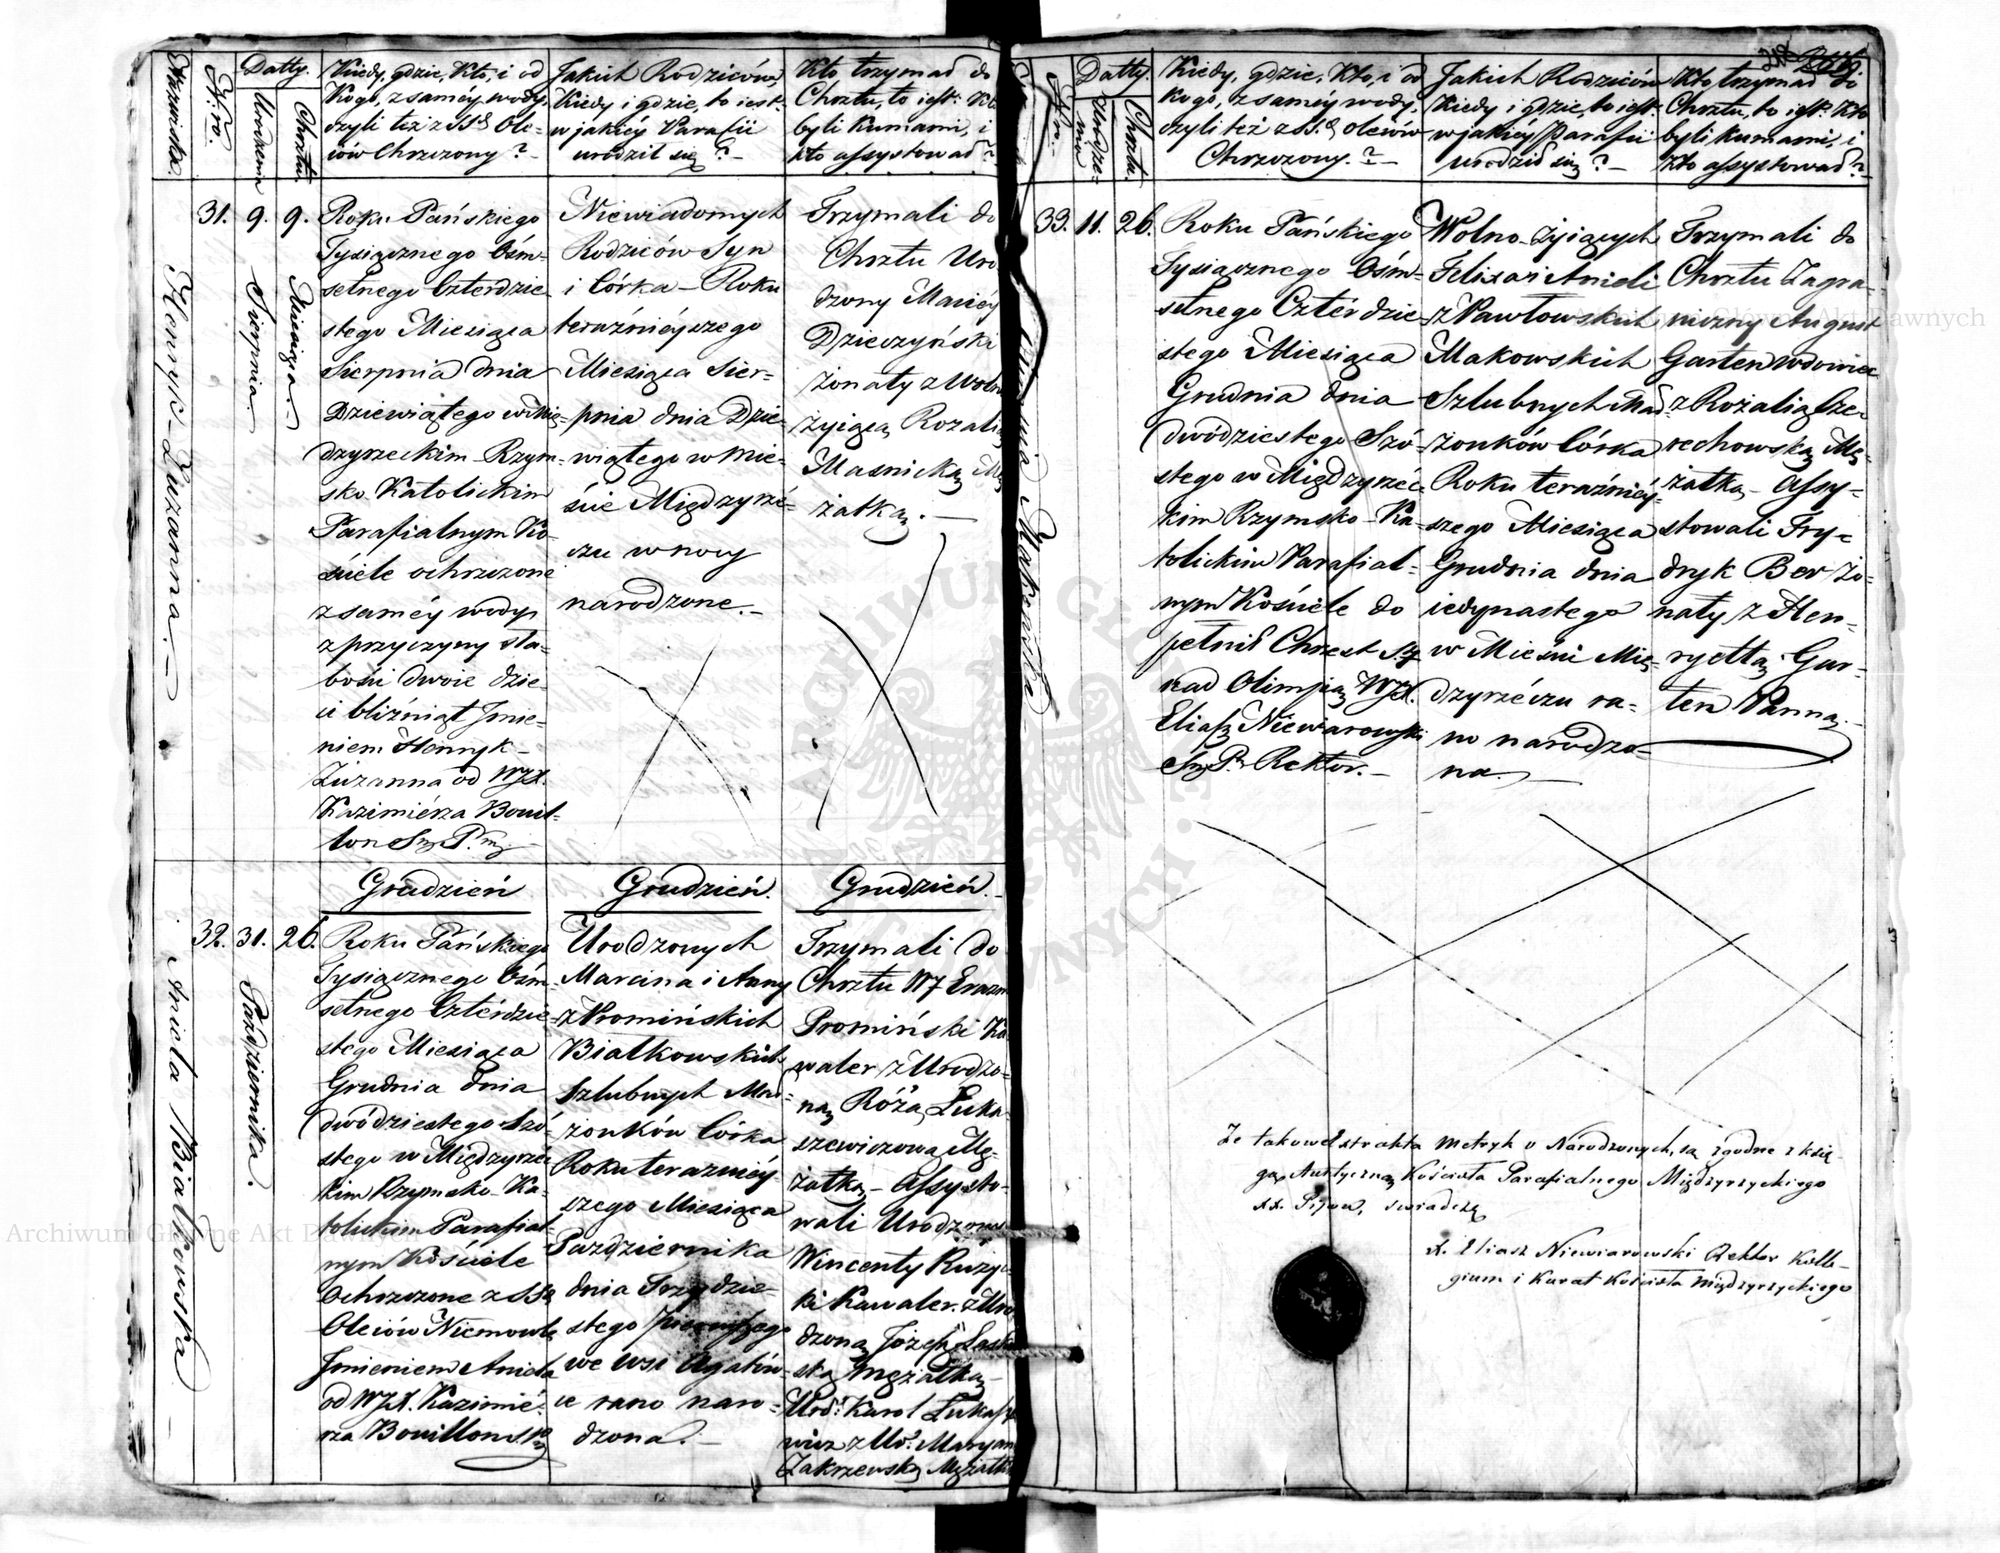 Nazwiska.
Nro.
Datty.
Urodzenia
Chrztu.
Kiedy, gdzie, Kto, i od
Kogo, z saméy wody,
czyli też z SS. Ole-
iów Chrzczony? -
Jakich Rodziców,
Kiedy i gdzie, to iest:
w jakiéy Parafii
urodził się? -
Kto, trzymał do
Chrztu, to iest: Kto
byli Kumami, i
kto assystował?
Henryk - Zuzanna. -
31.
9.
Sierpnia.
9.
Miesiąca. -
Roku Pańskiego
Tysiącznego Ośm-
setnego Czterdzie
stego Miesiąca
Sierpnia dnia
Dziewiątego w Mię-
dzyrzeckim Rzym-
sko Katolickim
Parafialnym Ko-
ściele ochrzczone
z saméy wody
z przyczyny sła-
bości dwoie dzie-
ci bliźniąt Jmie-
niem Henryk -
Zuzanna od WJX.
Kazimiérza Bouil-
lon
Niewiadomych
Rodziców Syn
i Córka - Roku
teraźniéyszego
Miesiąca Sier-
pnia dnia Dzie-
wiątego w Mie-
ście Międzyrzé-
czu w nocy
narodzone. -
Trzymali do
Chrztu Uro
dzony Maciéy
Dzieczyński
żonaty z Wolno
żyiącą Rozalią
Masnicką Mę
żatką. -
Grudzień
Grudzień.
Grudzień. -
Aniela Białkowska -
32.
31.
Października.
26.
Roku Pańskiego
Tysiącznego Ośm
setnego Cztérdzie-
stego Miesiąca
Grudnia dnia
dwódziestego Szó-
stego w Międzyrzec
kim Rzymsko-Ka-
tolickim Parafial-
nym Kościele
Ochrzczone z SS.
Oleiów Niemowlę
Jmieniem Aniela
od WJX. Kazimié-
rza Bouillon
Urodzonych
Marcina i Anny
z Promińskich
Białkowskich
Szlubnych Mał-
żonków Córka
Roku teraźniéy-
szego Miesiąca
Października
dnia Trzydzie-
stego pierwszego
we wsi Agatów-
ce rano naro-
dzona. -
Trzymali do
Chrztu WJ Erazm
Promiński Ka
waler z Urodzo-
ną Różą Łuka
szewiczową Mę-
żatką - Assysto-
wali Urodzony
Wincenty Ruzyc
ki Kawaler. z Uro
dzoną Józefą
ską Mężatką -
Urd: Karol Łukasze
wicz z Ur: Maryan
Zakrzewską Mężatką
Nro. -
Datty.
Urodze-
nia
Chrztu.
Kiedy, gdzie, Kto, i od
kogo, z saméy wody,
czyli też z SS. oleiów
Chrzczony. ? -
Jakich Rodziców
Kiedy i gdzie, to iest:
w jakiéy Parafii
urodził się? -
Kto trzymał do
Chrztu, to iest: Kto
byli kumami, i
Kto assystował? -
Makowska
33.
11.
26.
Roku Pańskiego
Tysiącznego Ośm-
setnego Cztérdzie-
stego Miesiąca
Grudnia dnia
dwódziestego Szó-
stego w Międzyrzéc-
kim Rzymsko-Ka-
tolickim Parafial-
nym Kościele do
pełnił Chrzest
nad Olimpią WJX.
Eliasz Niewiarowski
Rektor. -
Wolno-żyiących
Felixa i Anieli
z Pawłowskich
Makowskich
Szlubnych Mał-
żonków Córka
Roku teraźniéy-
szego Miesiąca
Grudnia dnia
iedynastego
w Mieście Mię-
dzyrzéczu ra-
no narodzo-
na. -
Trzymali do
Chrztu Zagra-
niczny August
Garten wdowiec
z Rozalią Cze-
rechowską Mę-
żatką - Assy-
stowali Fry-
dryk Ber żo-
naty z Hen-
ryettą Gar-
ten Panną. -
Że takowe Extrakta Metryk o Narodzonych, są zgodne z Księ-
gą Autyczną Kościoła Parafialnego Międzyrzyckiego
XX. Pijarów, świadczę
X. Eliasz Niewiarowski Rektor Kolle-
gium i Kurat Kościoła Międzyrzyckiego
Archiwum Główne Akt Dawnych
ARCHIWUM GŁÓWNE AKT DAWNYCH